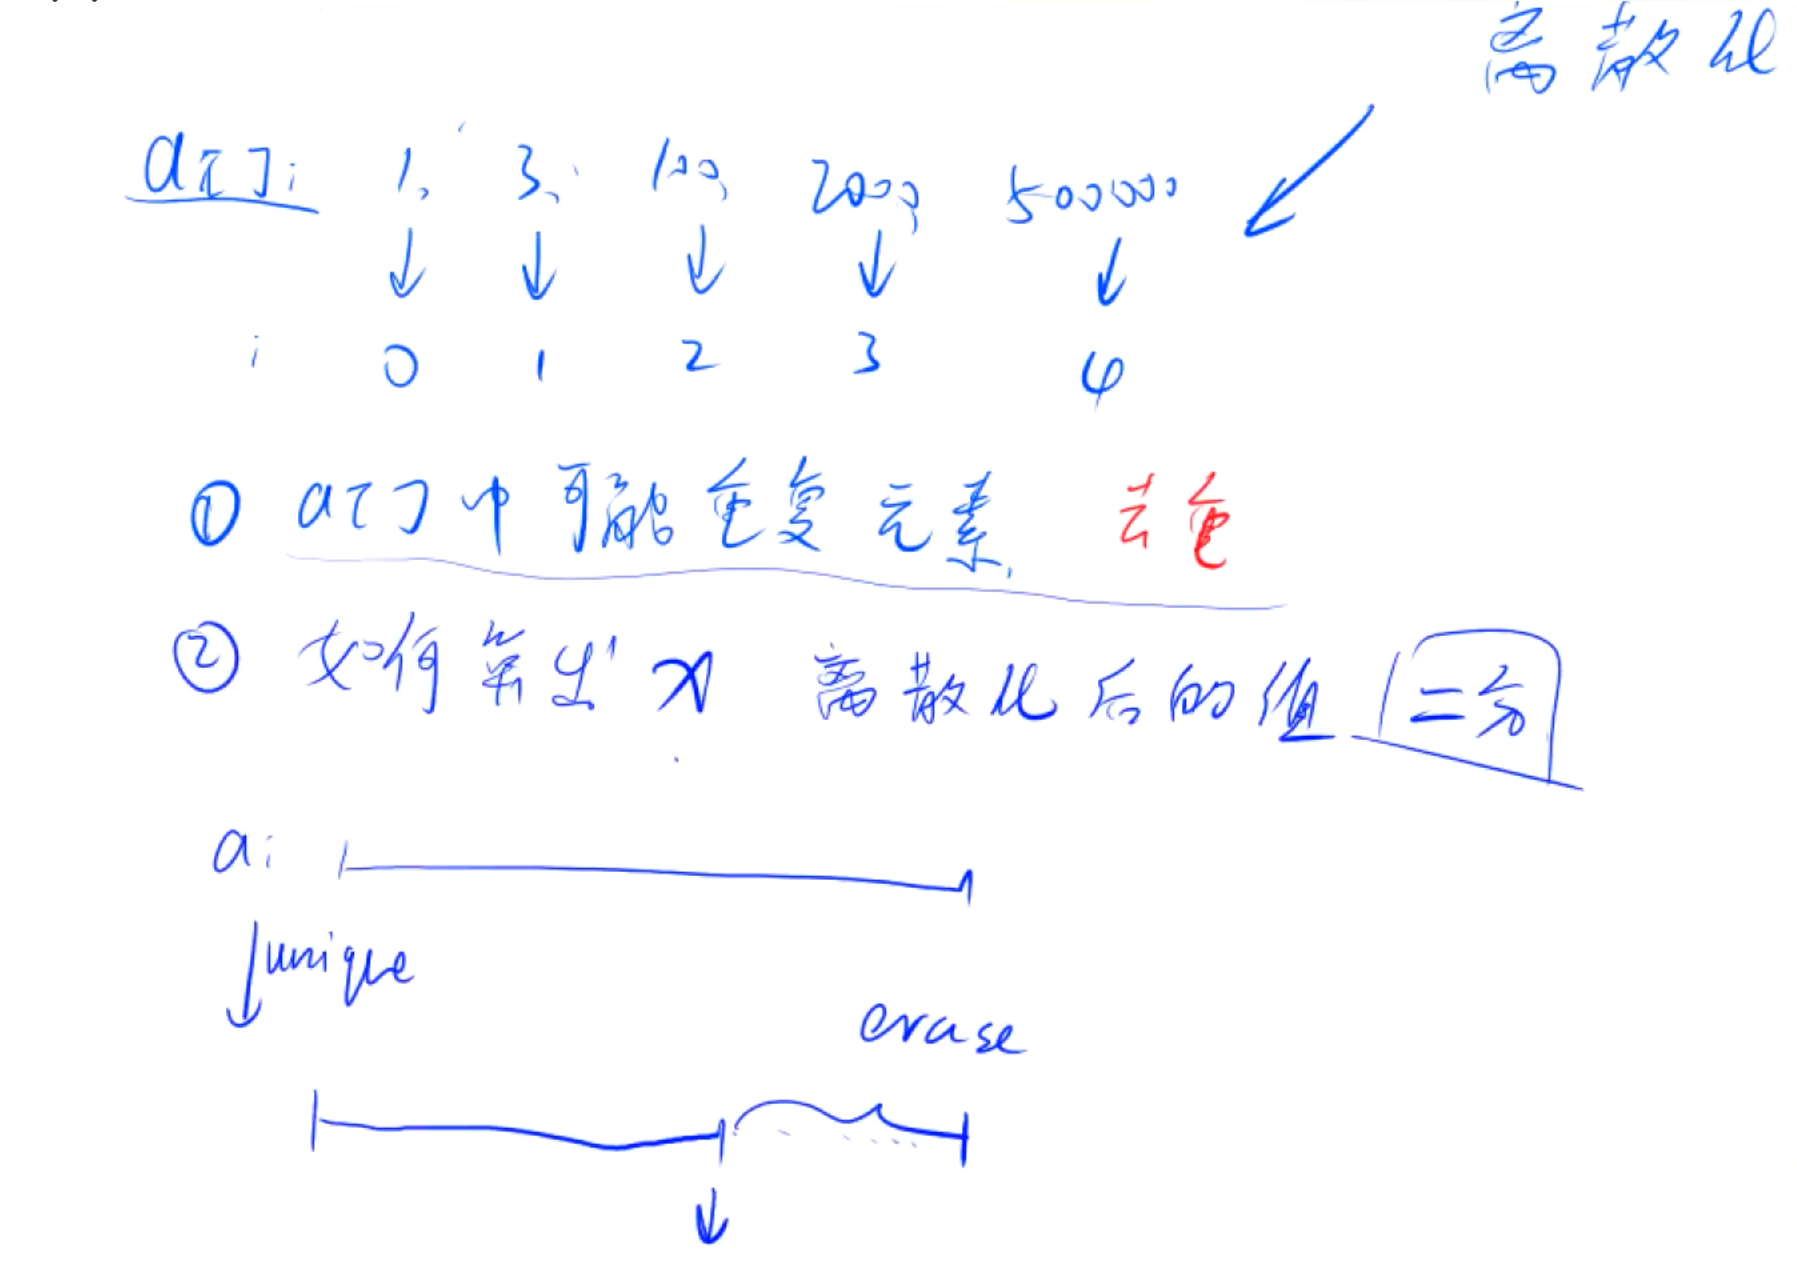 离散化
a[]: 1, 3, 100, 2000, 500000
i 0 1 2 3 4
① a[]中可能重复元素, 去重
② 如何算出 x 离散化后的值 二分
a:
unique
erase